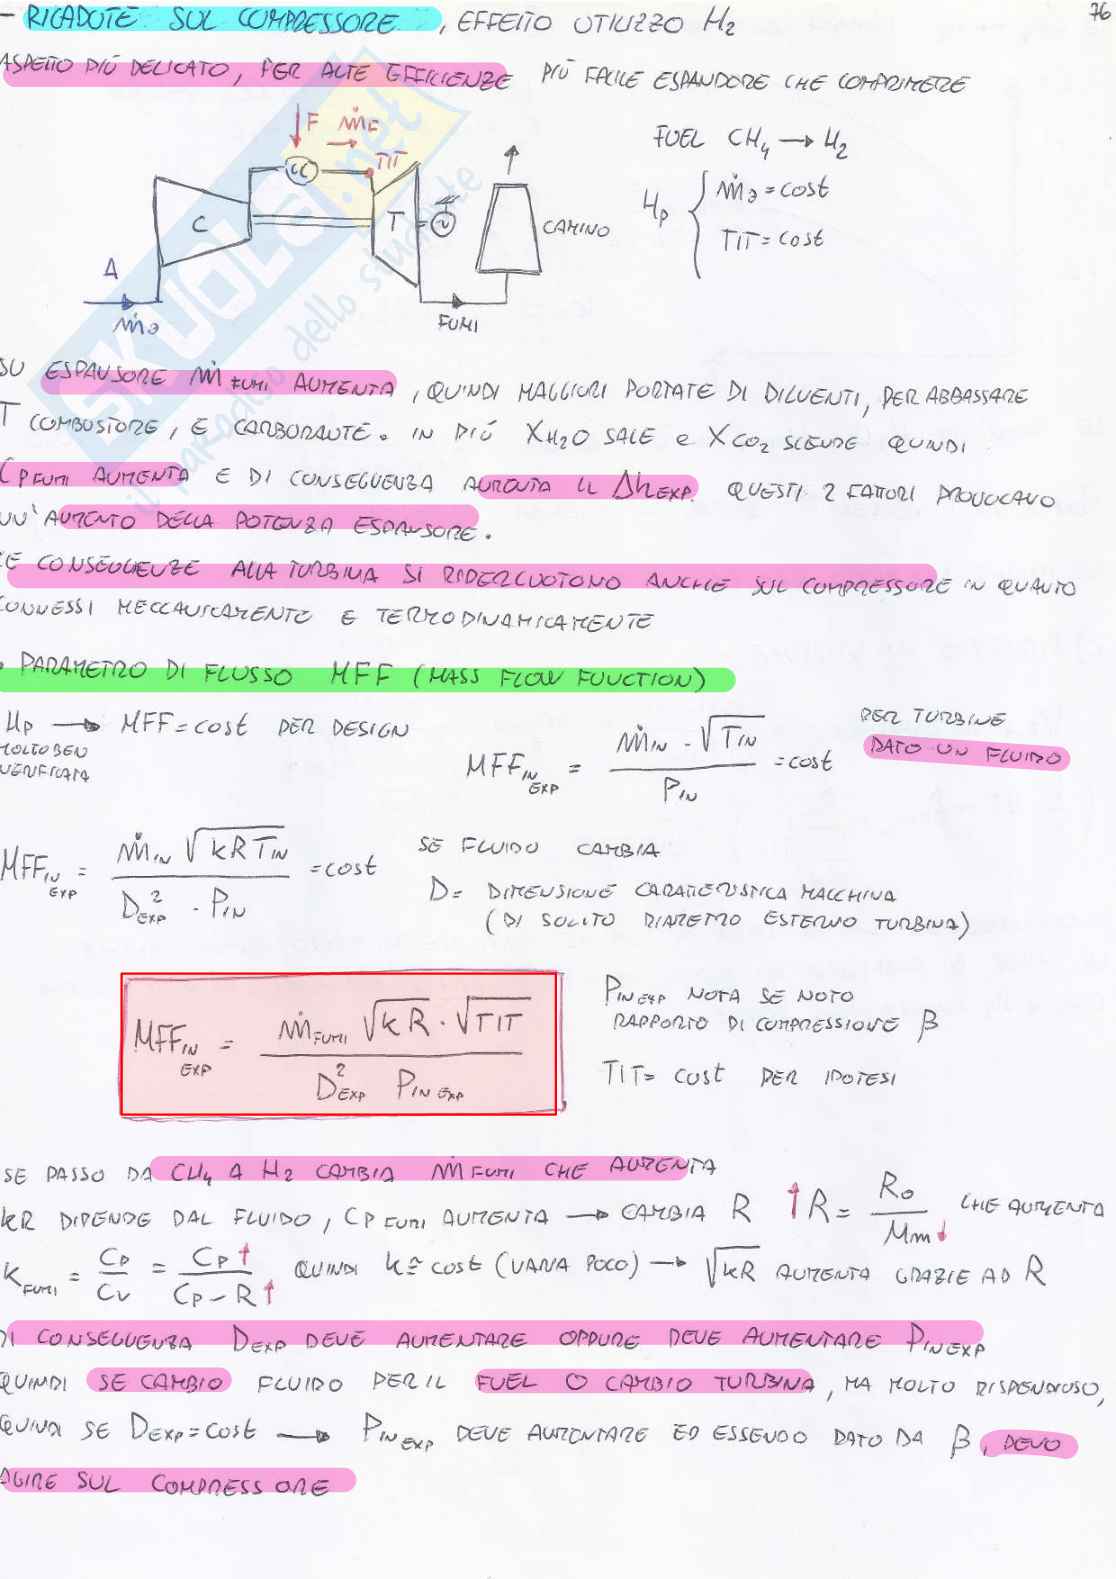 - RICADUTE SUL COMPRESSORE, EFFETTO UTILIZZO H2
76
ASPETTO PIÙ DELICATO, PER ALTE EFFICIENZE PIÙ FACILE ESPANDERE CHE COMPRIMERE
F ṁF
CC
TIT
C
T
CAMINO
A
ṁa
FUMI
FUEL CH4 → H2
Hp { ṁa = cost
TIT = cost
SU ESPANSORE ṁ FUMI AUMENTA, QUINDI MAGGIORI PORTATE DI DILUENTI, PER ABBASSARE
T COMBUSTORE, E CARBURANTE. IN PIÙ XH2O SALE e XCO2 SCENDE QUINDI
CP FUMI AUMENTA E DI CONSEGUENZA AUMENTA IL Δh EXP. QUESTI 2 FATTORI PROVOCANO
UN'AUMENTO DELLA POTENZA ESPANSORE.
LE CONSEGUENZE ALLA TURBINA SI RIPERCUOTONO ANCHE SUL COMPRESSORE IN QUANTO
CONNESSI MECCANICAMENTE E TERMODINAMICAMENTE
• PARAMETRO DI FLUSSO MFF (MASS FLOW FUNCTION)
Hp → MFF = cost PER DESIGN
MOLTO BEN
VERIFICATA
MFF IN EXP = ṁIN · √TIN / PIN = cost
PER TURBINE
DATO UN FLUIDO
MFF IN EXP = ṁIN √kRTIN / D²EXP · PIN = cost
SE FLUIDO CAMBIA
D = DIMENSIONE CARATTERISTICA MACCHINA
(DI SOLITO DIAMETRO ESTERNO TURBINA)
MFF IN EXP = ṁFUMI √kR · √TIT / D²EXP PIN EXP
PIN EXP NOTA SE NOTO
RAPPORTO DI COMPRESSIONE β
TIT = cost PER IPOTESI
SE PASSO DA CH4 A H2 CAMBIA ṁ FUMI CHE AUMENTA
kR DIPENDE DAL FLUIDO, CP FUMI AUMENTA → CAMBIA R ↑R = R0 / Mm↓ CHE AUMENTA
K FUMI = CP / CV = CP↑ / CP - R↑ QUINDI k ≅ cost (VARIA POCO) → √kR AUMENTA GRAZIE AD R
DI CONSEGUENZA DEXP DEVE AUMENTARE OPPURE DEVE AUMENTARE PIN EXP
QUINDI SE CAMBIO FLUIDO PER IL FUEL O CAMBIO TURBINA, MA MOLTO DISPENDIOSO,
QUINDI SE DEXP = cost → PIN EXP DEVE AUMENTARE ED ESSENDO DATO DA β, DEVO
AGIRE SUL COMPRESSORE
SKUOLA.net
il paradiso dello studente